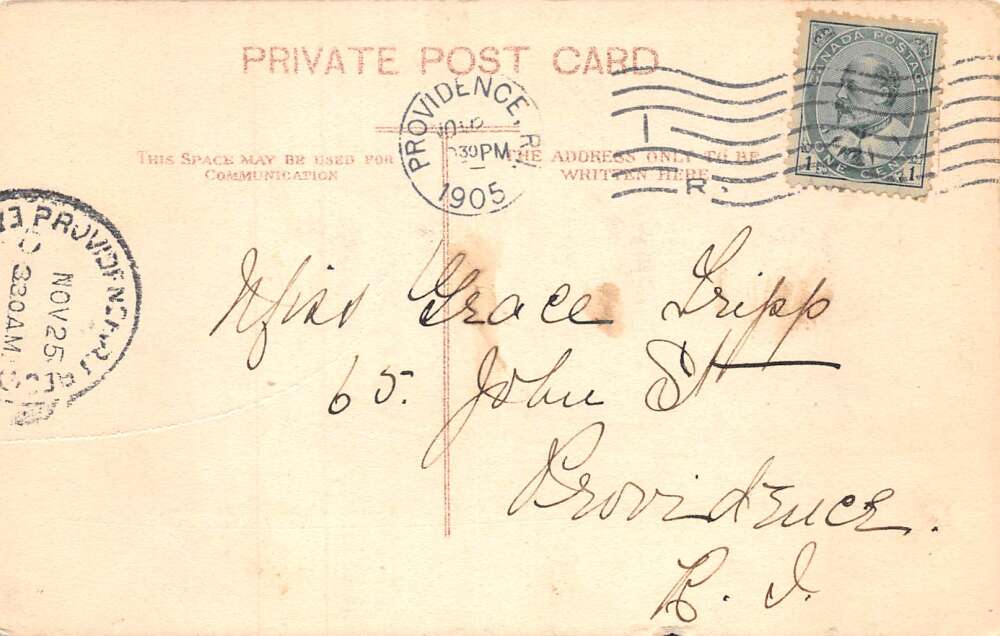 PRIVATE POST CARD
CANADA POSTAGE
ONE CENT
1 1
PROVIDENCE, R.
30PM
1905
1
R.
THIS SPACE MAY BE USED FOR
COMMUNICATION
THE ADDRESS ONLY TO BE
WRITTEN HERE
PROVIDENCE, R.I.
NOV 25
330AM
REC'D
Miss Grace Tripp
65. John St
Providence.
R. I.